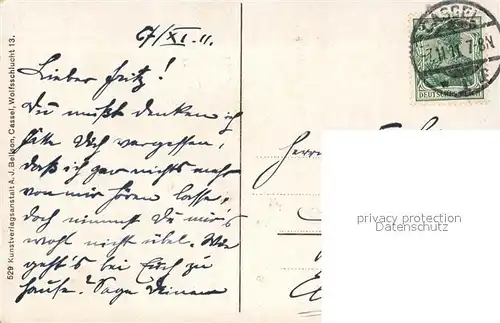 67/XI.11.
Lieber Fritz!
Du mußt denken ich
hätte Dich vergessen,
daß ich gar nichts mehr
von mir hören lasse,
doch nimmst Du mir's
wohl nicht übel. Wie
geht's bei Euch zu
Hause? Sage Deinen
529 Kunstverlagsanstalt A. J. Bellson, Cassel, Wolfsschlucht 13.
CASSEL
7.11.11. 7-8N
DEUTSCHES REICH
Herrn
privacy protection